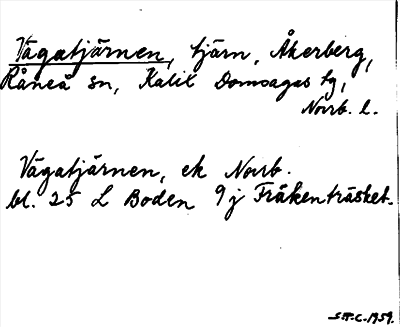 Vägatjärnen, tjärn, Åkerberg,
Råneå sn, Kalix Domsagas tg,
Norrb. l.
Vägatjärnen, ek Norrb.
bl. 25 L Boden 9 j Fräkenträsket.
S.H.C. 1959.